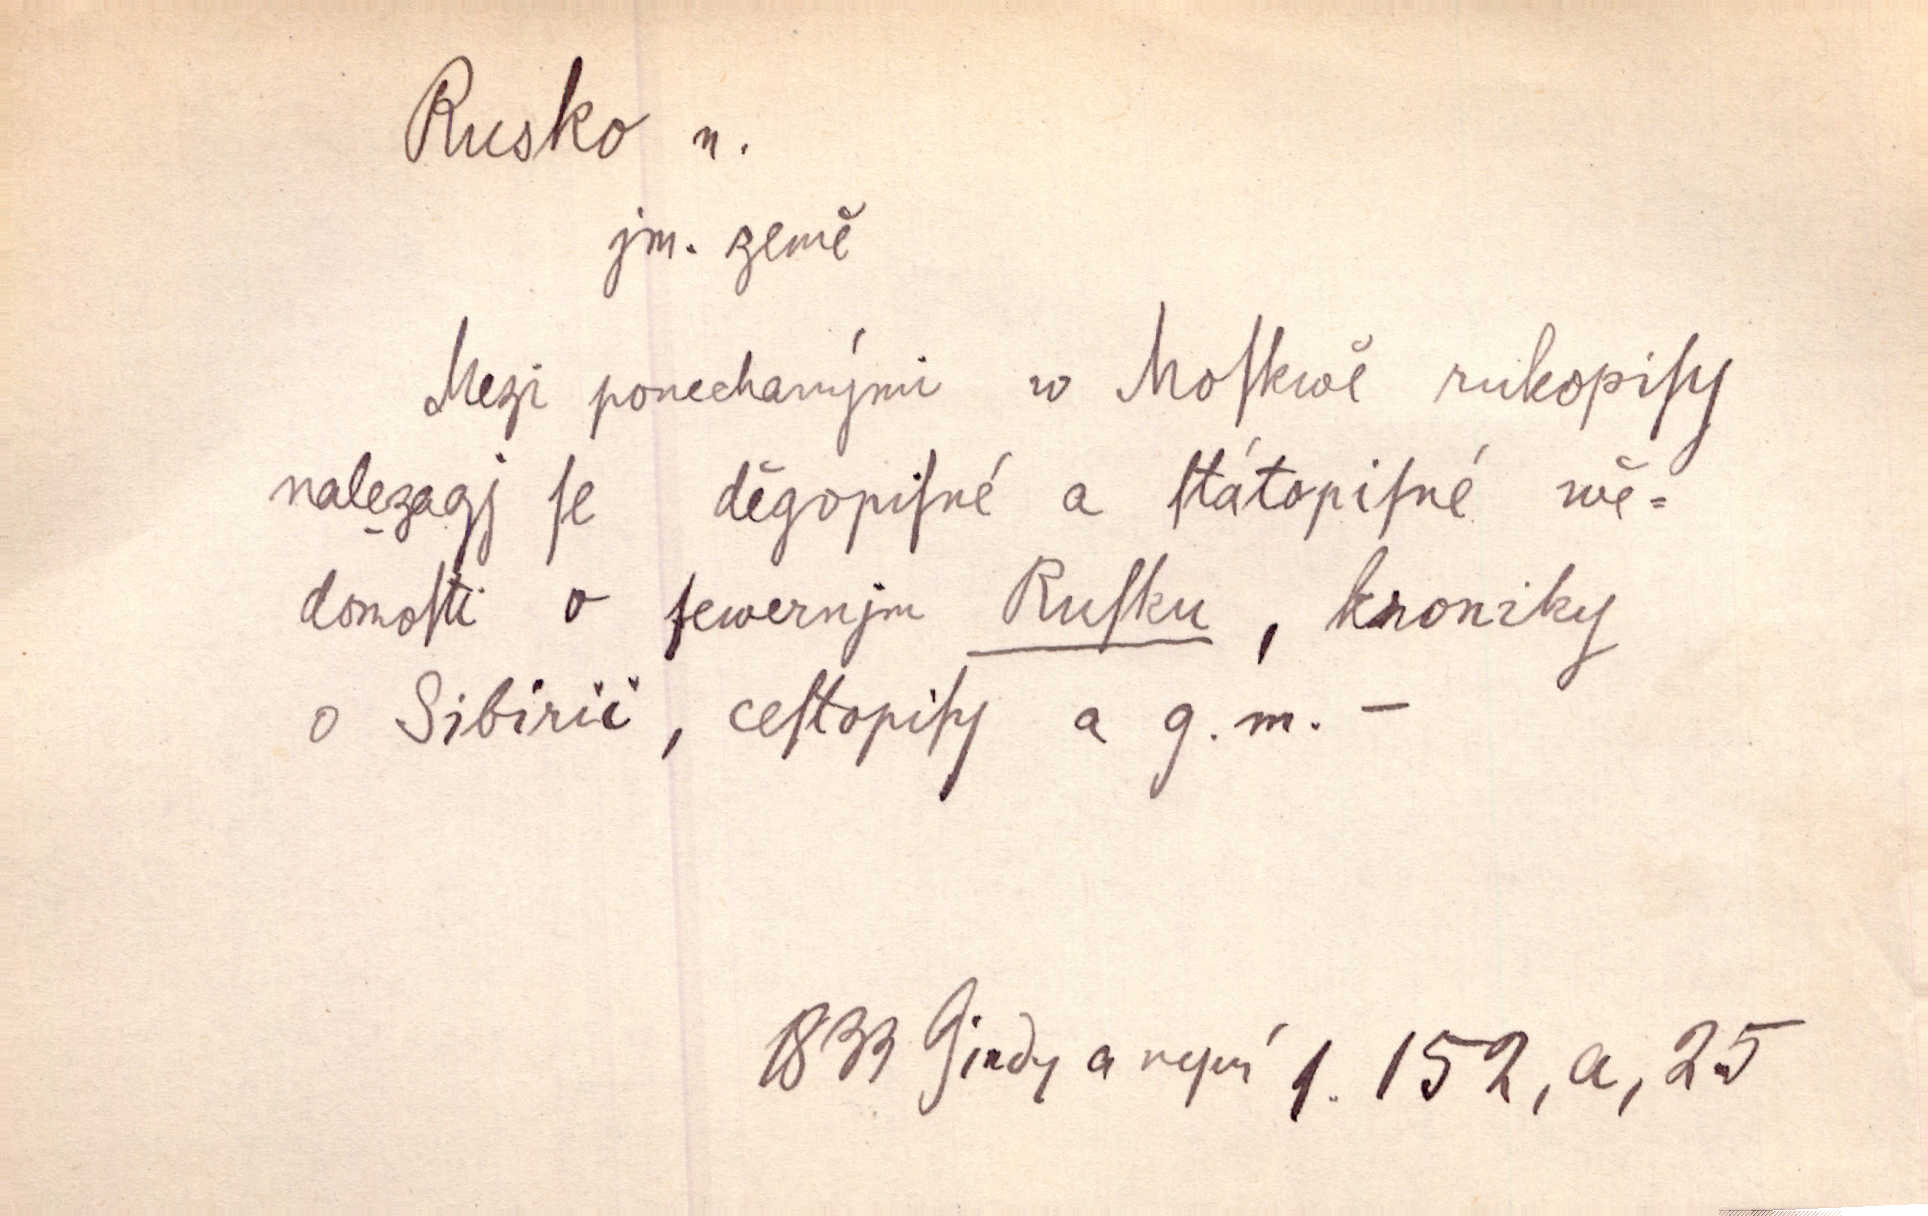 Rusko n.
jm. země
Mezi ponechanými w Moſkwě rukopiſy
nalezagj ſe děgopiſné a ſtátopiſné wě=
domoſti o ſewernjm Ruſku, kroniky
o Sibirii, ceſtopiſy a g. m. –
1833 Gindy a nyní 1. 152, a, 25